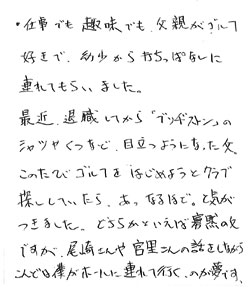 ・仕事でも趣味でも、父親がゴルフ
好きで、幼少から打ちっぱなしに
連れてもらいました。
最近、退職してから「ブリヂストン」の
シャツやくつなど、目立つようになった父。
このたびゴルフをはじめようとクラブ
探ししていたら、あっなるほど。と気が
つきました。どちらかといえば寡黙の父
ですが、尾崎さんや宮里さんの話をしながら
こんどは僕がホールに連れて行く、のが夢です。